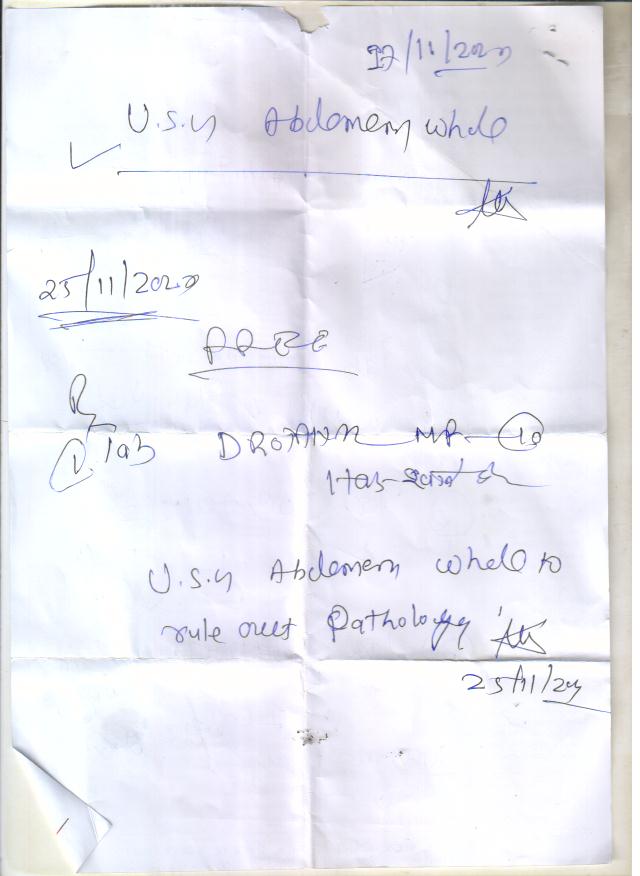 17/11/2020
U.S.G Abdomen whole
25/11/2020
FREE
Rx
1. Tab DROTANIR MF 10
1 tab
U.S.G Abdomen whole to
rule out Pathology
25/11/20